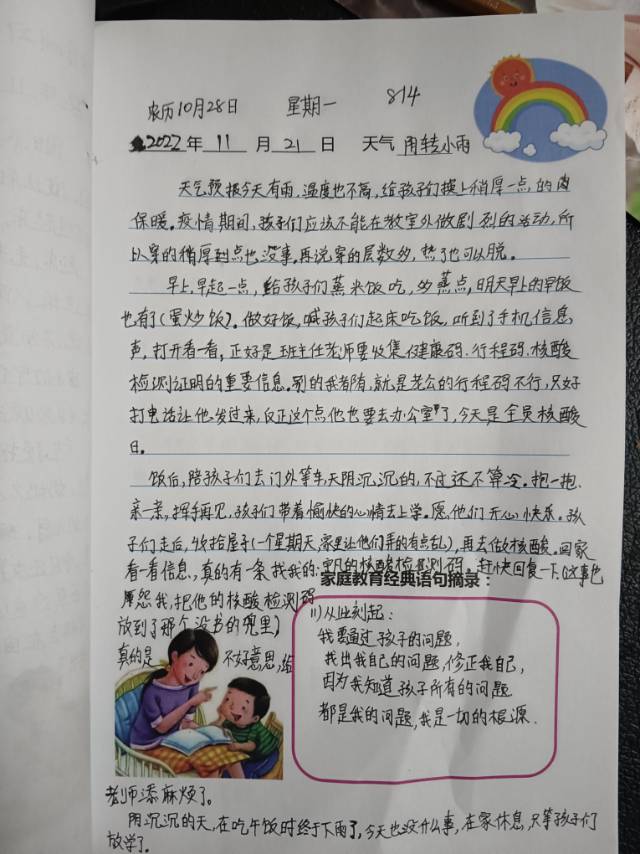 农历10月28日 星期一 814
2022年 11 月 21 日 天气 阴转小雨
天气预报今天有雨,温度也不高,给孩子们换上稍厚一点的
保暖。疫情期间,孩子们应该不能在教室外做剧烈的活动,所
以穿的稍厚到点也没事。再说穿的层数多,热了也可以脱。
早上早起一点,给孩子们蒸米饭吃,多蒸点,明天早上的早饭
也有了(蛋炒饭)。做好饭,喊孩子们起床吃饭,听到了手机信息
声,打开看一看,正好是班主任老师要收集健康码、行程码、核酸
检测证明的重要信息。别的我都有,就是老公的行程码不行,只好
打电话让他发过来,反正这个点他也要去办公室了,今天是全员核酸
日。
饭后,陪孩子们去门外等车,天阴沉沉的,不过还不算冷。抱一抱、
亲一亲,挥手再见,孩子们带着愉快的心情去上学。愿他们开心快乐。孩
子们走后,收拾屋子(一个星期天,家里让他们弄的有点乱),再去做核酸。回家
看一看信息,真的有一条找我的:的核酸检测码。赶快回复一下。(这事也
怨我,把他的核酸检测码
放到了那个没书的兜里)
真的是 不好意思,给
家庭教育经典语句摘录:
(1)从此刻起:
我要通过孩子的问题,
找出我自己的问题,修正我自己,
因为我知道孩子所有的问题
都是我的问题,我是一切的根源.
老师添麻烦了。
阴沉沉的天,在吃午饭时终于下雨了,今天也没什么事,在家休息,只等孩子们
放学了。